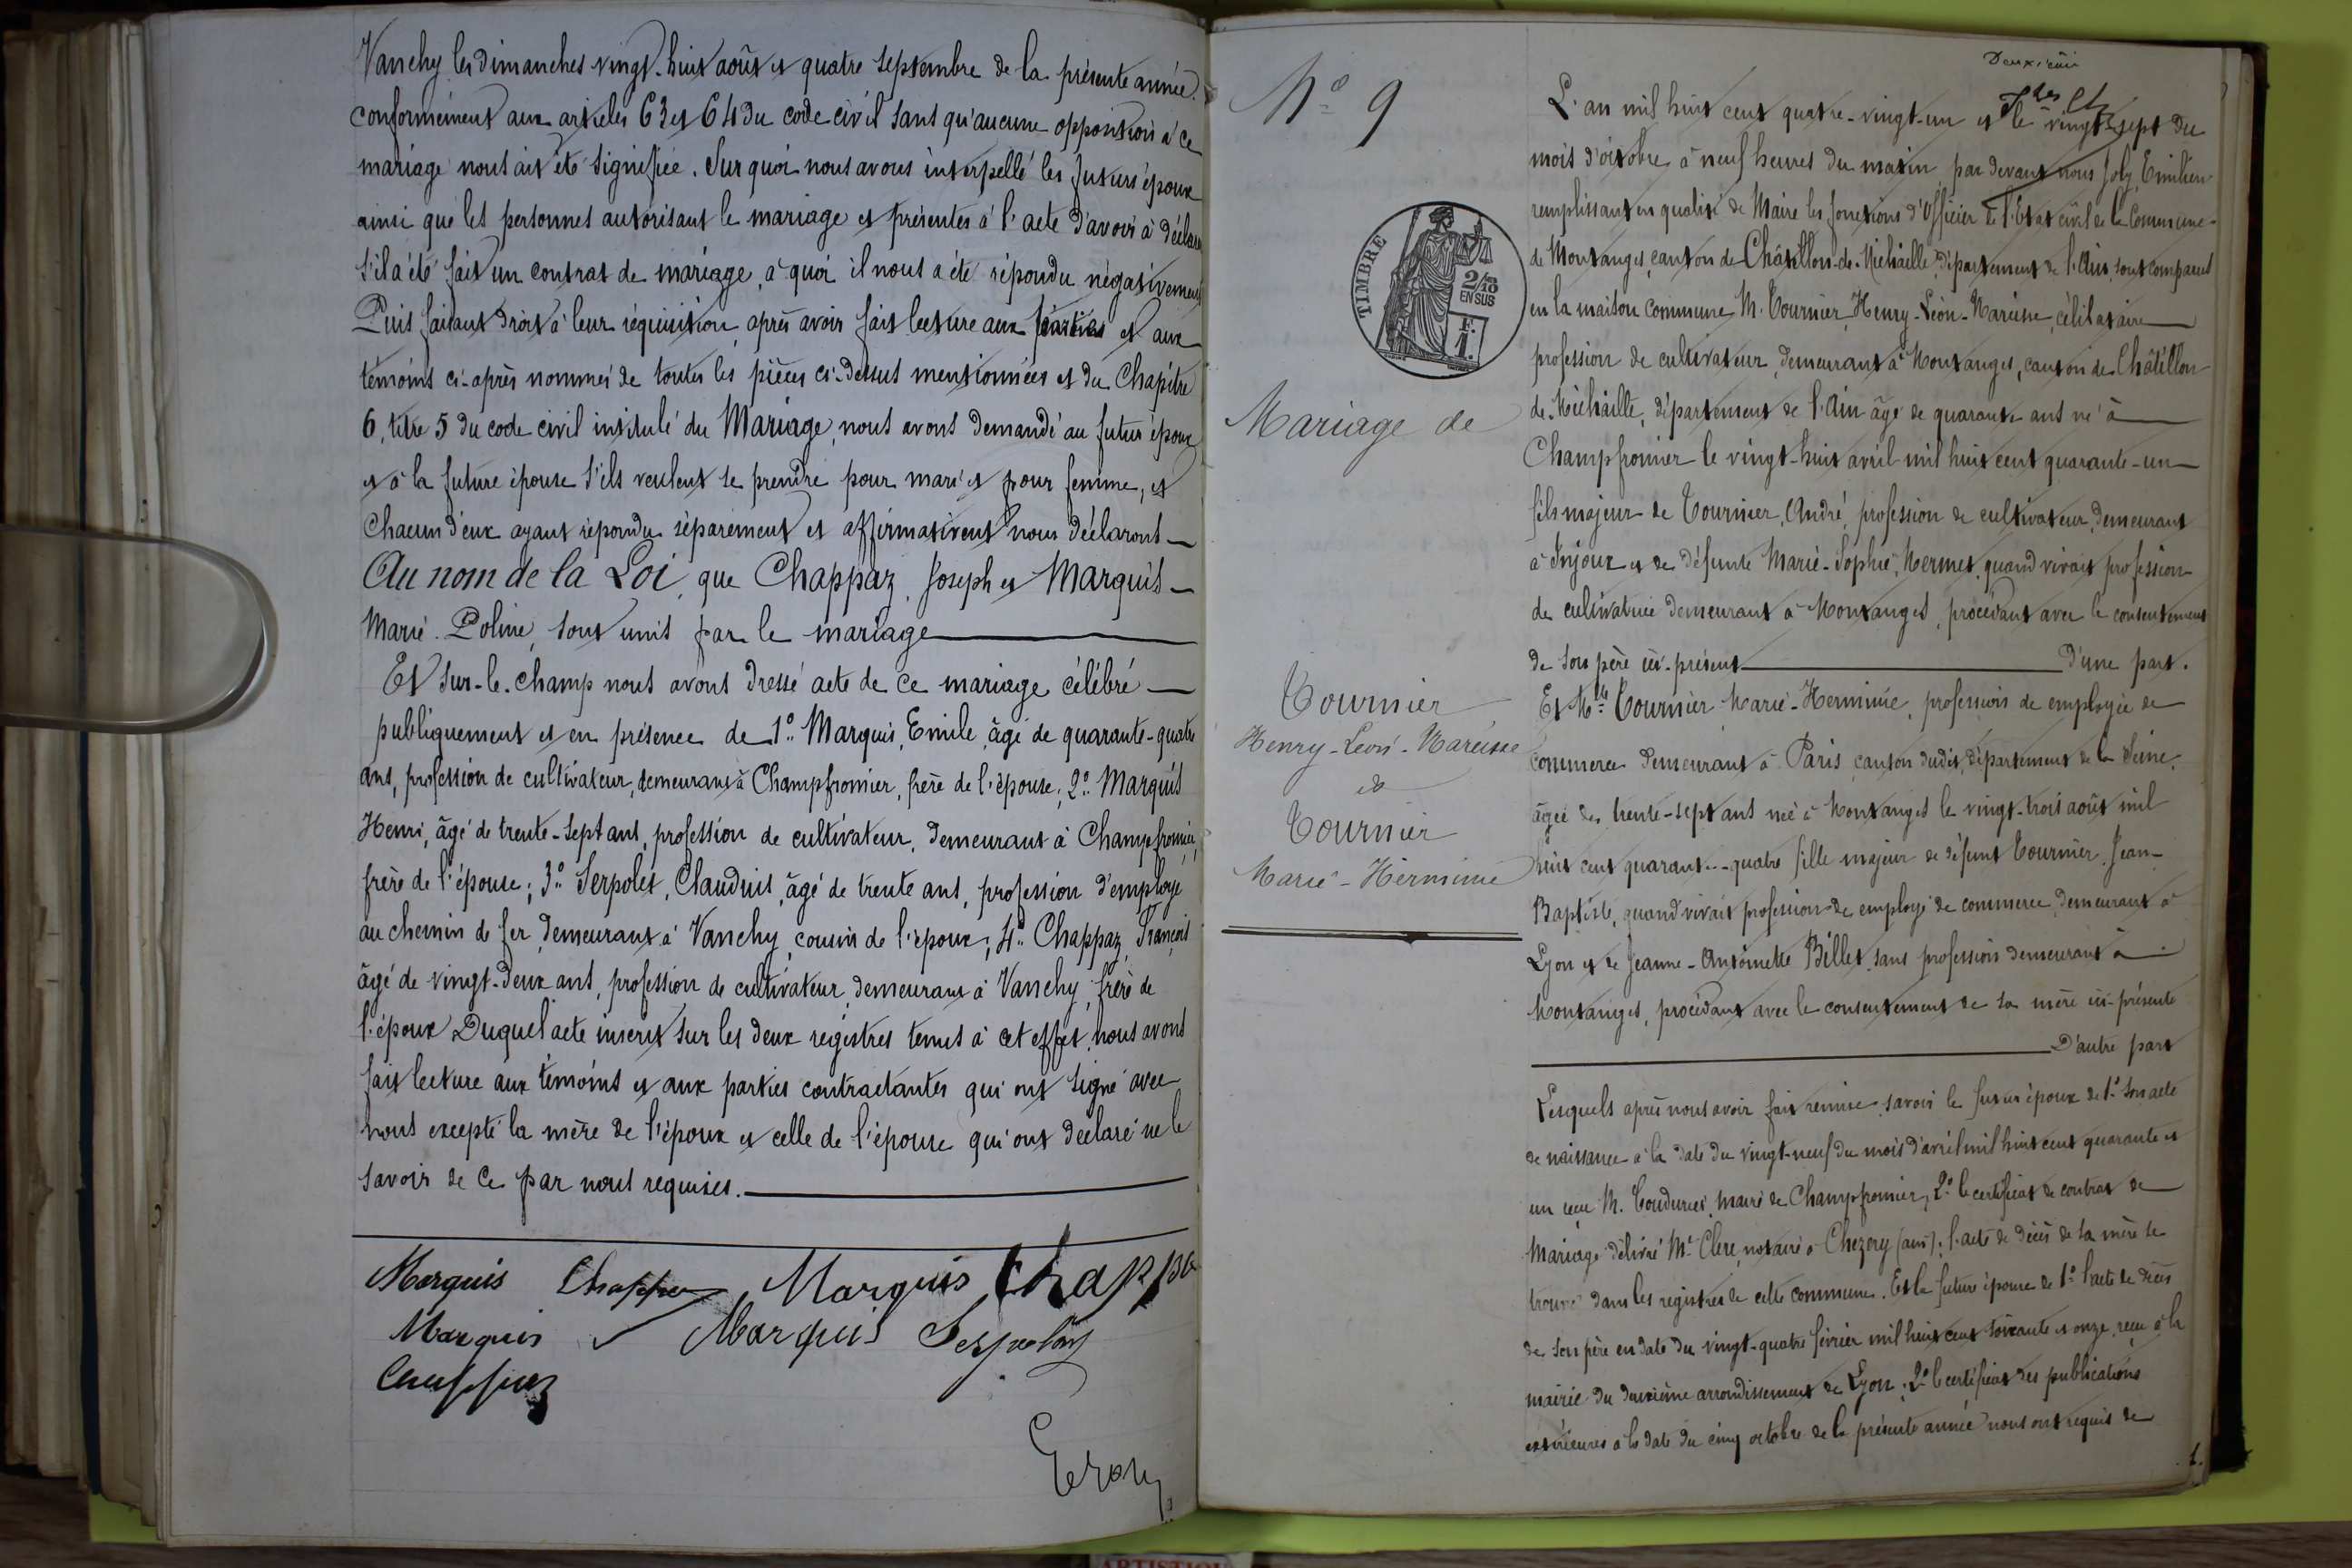 Vanchy les dimanches vingt-huit août et quatre septembre de la présente année.
conformément aux articles 63 et 64 du code civil sans qu'aucune opposition à ce
mariage nous ait été signifiée. Sur quoi nous avons interpellé les futurs époux
ainsi que les personnes autorisant le mariage et présentes à l'acte d'avoir à déclarer
s'il a été fait un contrat de mariage, à quoi il nous a été répondu négativement
Puis faisant droit à leur réquisition, après avoir fait lecture aux parties et aux
témoins ci-après nommés de toutes les pièces ci-dessus mentionnées et du Chapitre
6, titre 5 du code civil intitulé du Mariage, nous avons demandé au futur époux
et à la future épouse s'ils veulent se prendre pour mari et pour femme, et
Chacun d'eux ayant répondu séparément et affirmativent nous déclarons
Au nom de la Loi, que Chappaz, Joseph et Marquis
Marie-Poline, sont unis par le mariage
Et sur-le-champ nous avons dressé acte de ce mariage célébré
publiquement et en présence de 1º Marquis, Emile, âgé de quarante-quatre
ans, profession de cultivateur, demeurant à Champfromier, frère de l'épouse; 2º Marquis
Henri, âgé de trente-sept ans, profession de cultivateur, demeurant à Champfromier,
frère de l'épouse; 3º Serpolet, Claudius, âgé de trente ans, profession d'employé
au chemin de fer, demeurant à Vanchy, cousin de l'époux; 4º Chappaz, François
âgé de vingt-deux ans, profession de cultivateur, demeurant à Vanchy, frère de
l'époux Duquel acte inscrit sur les deux registres tenus à cet effet, nous avons
fait lecture aux témoins et aux parties contractantes qui ont signé avec
nous excepté la mère de l'époux et celle de l'épouse qui ont déclaré ne le
savoir de ce par nous requises.
Marquis Chappaz Marquis Chappaz
Marquis Marquis Serpolet
Chappaz
Nº 9
TIMBRE
2/10
EN SUS
F.
1.
Mariage de
Tournier
Henry-Léon-Narcisse
et
Tournier
Marie-Herminie
Deuxième
L'an mil huit cent quatre-vingt-un et le vingt-sept du
mois d'octobre à neuf heures du matin, par devant nous Joly, Emilien
remplissant en qualité de Maire les fonctions d'Officier de l'Etat civil de la Commune
de Montanges, canton de Châtillon-de-Michaille, département de l'Ain, sont comparus
en la maison commune M. Tournier, Henry-Léon-Narcisse, célibataire
profession de cultivateur, demeurant à Montanges, canton de Châtillon
de-Michaille, département de l'Ain âgé de quarante ans né à
Champfromier le vingt-huit avril mil huit cent quarante-un
fils majeur de Tournier, André, profession de cultivateur, demeurant
à Injoux et de défunte Marie-Sophie, Mermet, quand vivait profession
de cultivatrice demeurant à Montanges, procédant avec le consentement
de son père ici-présent d'une part.
Et Mlle Tournier Marie-Herminie, profession de employée de
commerce demeurant à Paris canton dudit, département de la Seine,
âgée de trente-sept ans née à Montanges le vingt-trois août mil
huit cent quarant--quatre fille majeur de défunt Tournier, Jean-
Baptiste, quand vivait profession de employé de commerce, demeurant à
Lyon et de Jeanne-Antoinette Billet, sans profession demeurant à
Montanges, procédant avec le consentement de sa mère ici-présente
D'autre part
Lesquels après nous avoir fait remise savoir le futur époux de 1º son acte
de naissance à la date du vingt-neuf du mois d'avril mil huit cent quarante et
un reçu M. Coudurier, maire de Champfromier, 2º le certificat de contrat de
Mariage délivré Me Clerc, notaire à Chezery (ain); l'acte de décès de sa mère se
trouve dans les registres de cette commune. Et la future épouse de 1º l'acte de décès
de son père en date du vingt-quatre février mil huit cent soixante et onze, reçu à la
mairie du deuxième arrondissement de Lyon; 2º le certificat des publications
extérieures à la date du cinq octobre de la présente année nous ont requis de